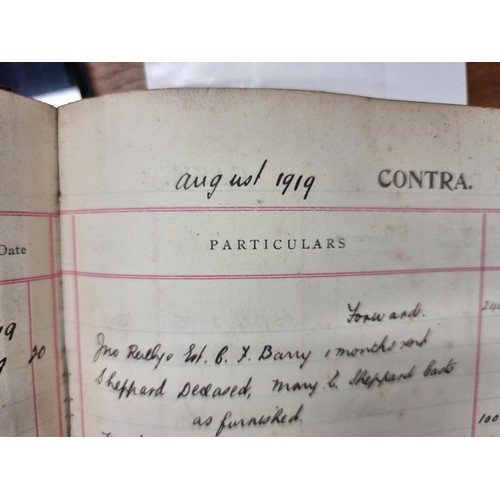 august 1919 CONTRA.
Date PARTICULARS
Forward. 24
Jno Reilly Est. C. F. Barry 1 months rent
20 Sheppard Deceased, Mary C. Sheppard
as furnished.
100